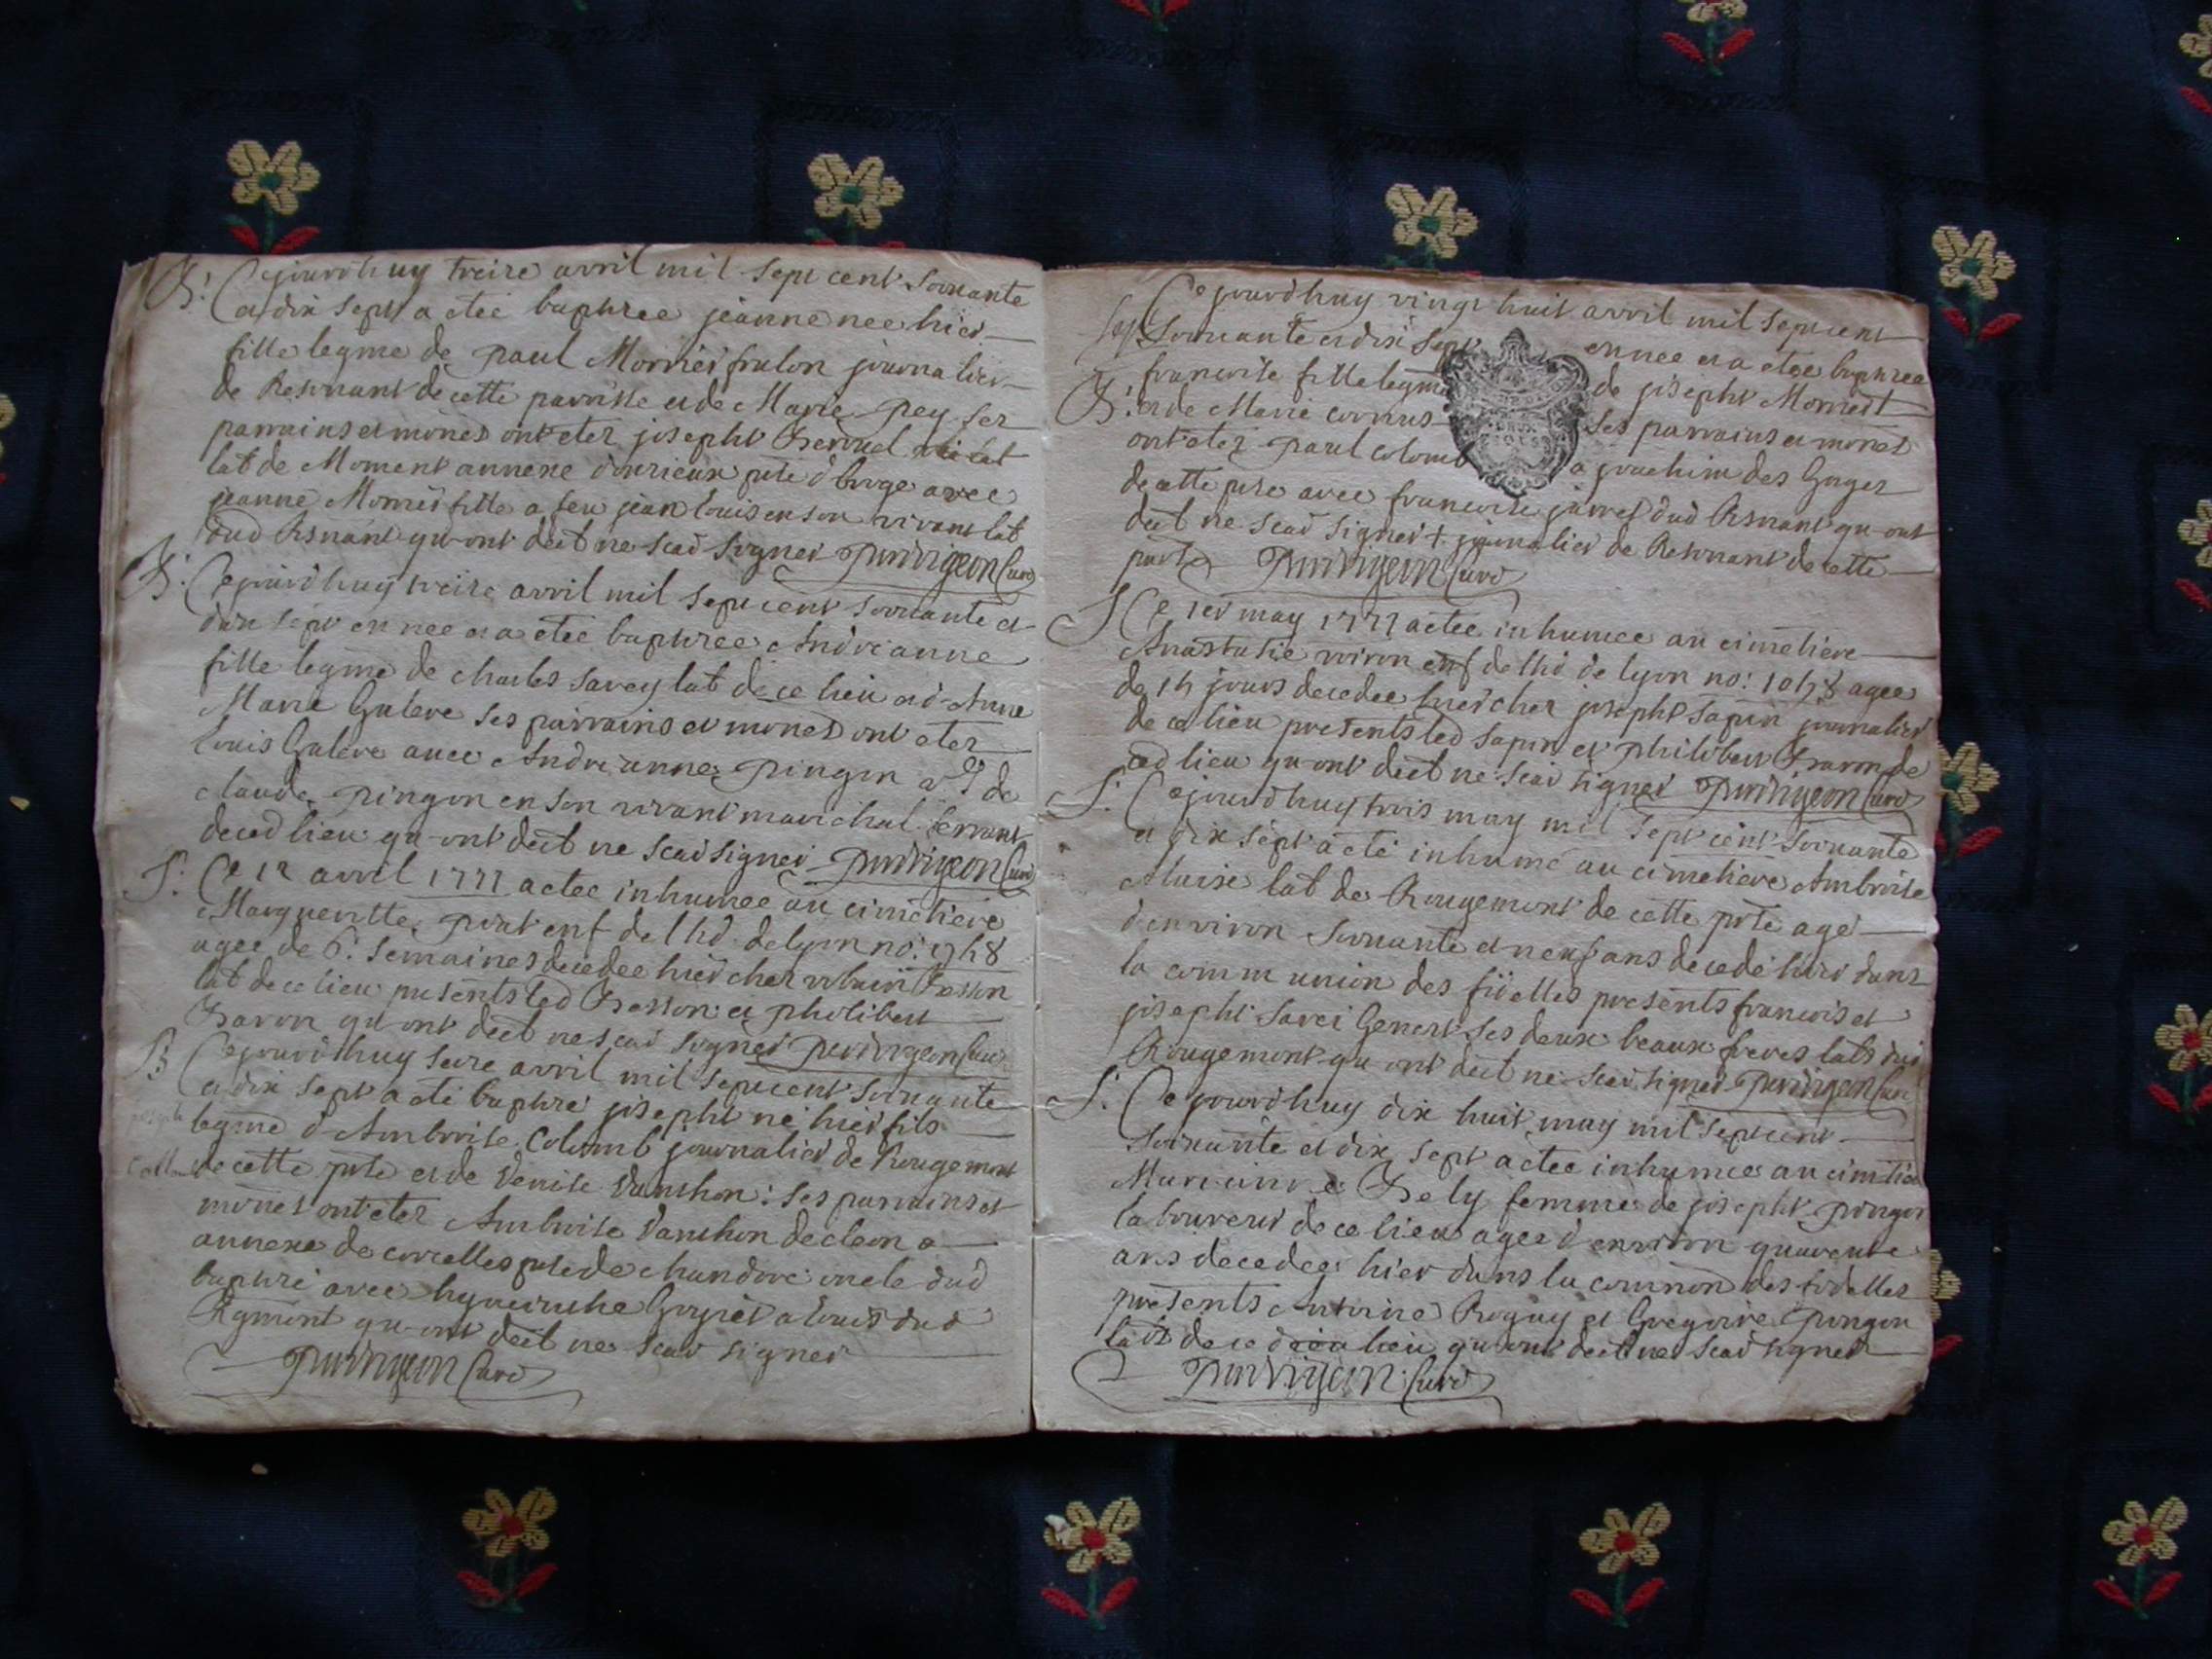 B: Cejourdhuy treize avril mil sept cent soixante
et dix sept a etee baptizee jeanne nee hier
fille legme de paul Morrier fralon journalier
de Resinant de cette parroisse et de Marie pey ses
parrains et mones ont etez josepht
lab de Moment annexe d'onrieux pste d'boage avec
jeanne Morrier fille a feu jean louis en son vivant lab
dud Resinant qu-ont dect ne scav signer perdrigeon Curé
B: Cejourdhuy treize avril mil sept cent soixante et
dix sept en nee et a etee baptizee Andréanne
fille legme de charles savey lab de ce lieu et d'Anne
Marie Galere ses parrains et mones ont etez
louis Galere avec Andréanne pingon a f de
claude pingon en son vivant marichal ferrant
de ced lieu qu-ont dect ne scav signer perdrigeon Curé
S: Ce 12 avril 1777 a etee inhumee au cimetiere
Margueritte prat enf de lhd de lyon no: 9748
agee de 6: semaines decedee hier chez Besson
lab de ce lieu presents led Besson et philibert
Baron qu-ont dect ne scav signer perdrigeon Curé
B Cejourdhuy seize avril mil sept cent soixante
et dix sept a eté baptizé josepht né hier fils
joseph
legme d'Ambroise Columb journalier de Rougemont
de cette pste et de Denise Vanchon: ses parrains et
mones ont etez Ambroise Vanchon de cleon a
annexe de corcelles pste de chandore oncle dud
baptizé avec hyacinthe Goyiet a louis dud
Rgmont qu-ont dect ne scav signer
perdrigeon Curé
Cejourdhuy vingt huit avril mil sept cent
soixante et dix sept en nee et a etee baptizee
francoise fille legme de josepht Morrier +
B: et de Marie cornus ses parrains et mones
ont etez paul colomb a joachim des Gages
de cette pste avec francoise jarres dud Resinant qu-ont
dect ne scav signer + journalier de Resinant de cette
parse perdrigeon Curé
S Ce 1er may 1777 a etee inhumee au cimetiere
Anastasie voiron enf de lhd de lyon no: agee
de 14 jours decedee hier chez josepht sapin journalier
de ce lieu presents led sapin et philibert Baron de
ced lieu qu-ont dect ne scav signer perdrigeon Curé
S: Cejourdhuy trois may mil sept cent soixante
et dix sept a eté inhumé au cimetiere Ambroise
Aluise lab de Rougemont de cette pste agé
d'environ soixante et neuf ans decedé hier dans
la communion des fidelles presents francois et
josepht Savei Genert ses deux beaux freres labs dud
Rougemont qu ont dect ne scav signer perdrigeon Curé
S: Cejourdhuy dix huit may mil sept cent
soixante et dix sept a etee inhumee au cimetie
Mariaine Bely femme de josepht pingon
laboureur de ce lieu agee d'environ quarente
ans decedee hier dans la comnion des fidelles
presents Antoine Rogny et Gregoire pingon
labs de ce lieu qu-ont dect ne scav signer
perdrigeon Curé